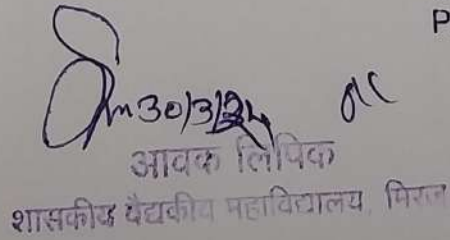 P
30/3/24
आवक लिपिक
शासकीय वैद्यकीय महाविद्यालय, मिरज